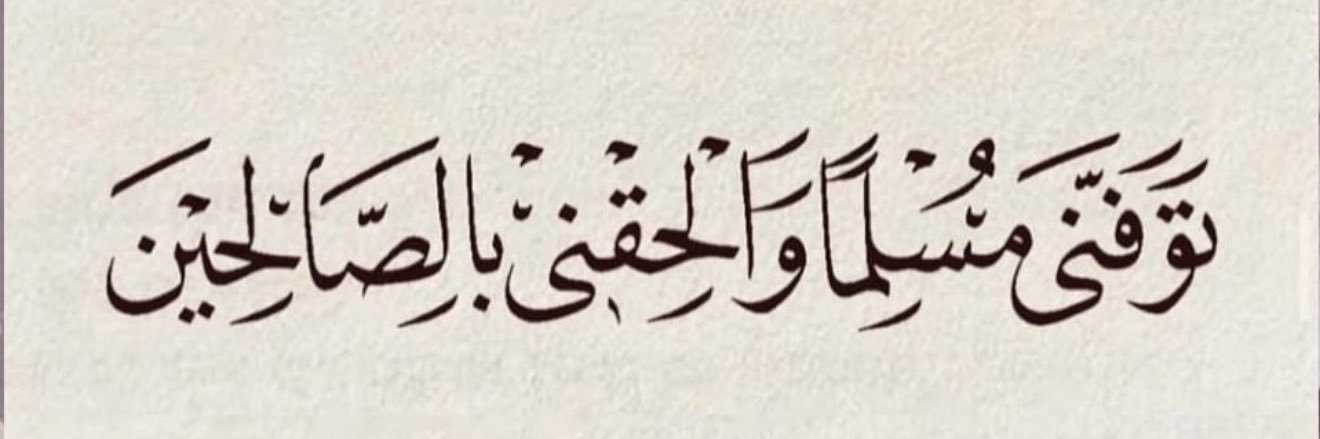 تَوَفَّنِّى مُسْلِمًا وَاَلْحِقْنِىْ بِالصَّالِحِيْنَ